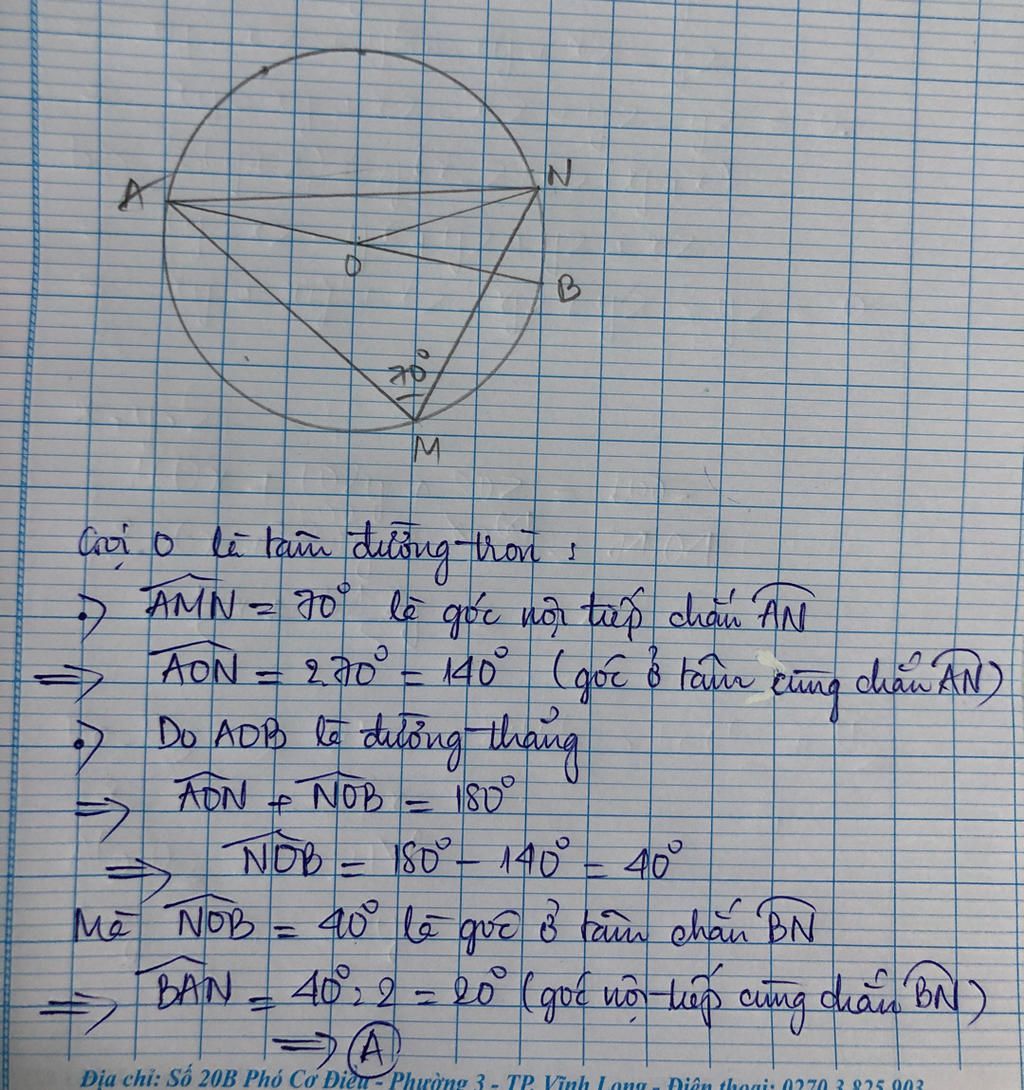 A
N
O
B
70°
M
Gọi O là tâm đường tròn :
•) AMN = 70° là góc nội tiếp chắn AN
=> AON = 2.70° = 140° (góc ở tâm cùng chắn AN)
•) Do AOB là đường thẳng
=> AON + NOB = 180°
=> NOB = 180° - 140° = 40°
Mà NOB = 40° là góc ở tâm chắn BN
=> BAN = 40° : 2 = 20° (góc nội tiếp cùng chắn BN)
=> A
Địa chỉ: Số 20B Phó Cơ Điều - Phường 3 - TP. Vĩnh Long - Điện thoại: 0270 3 825 903